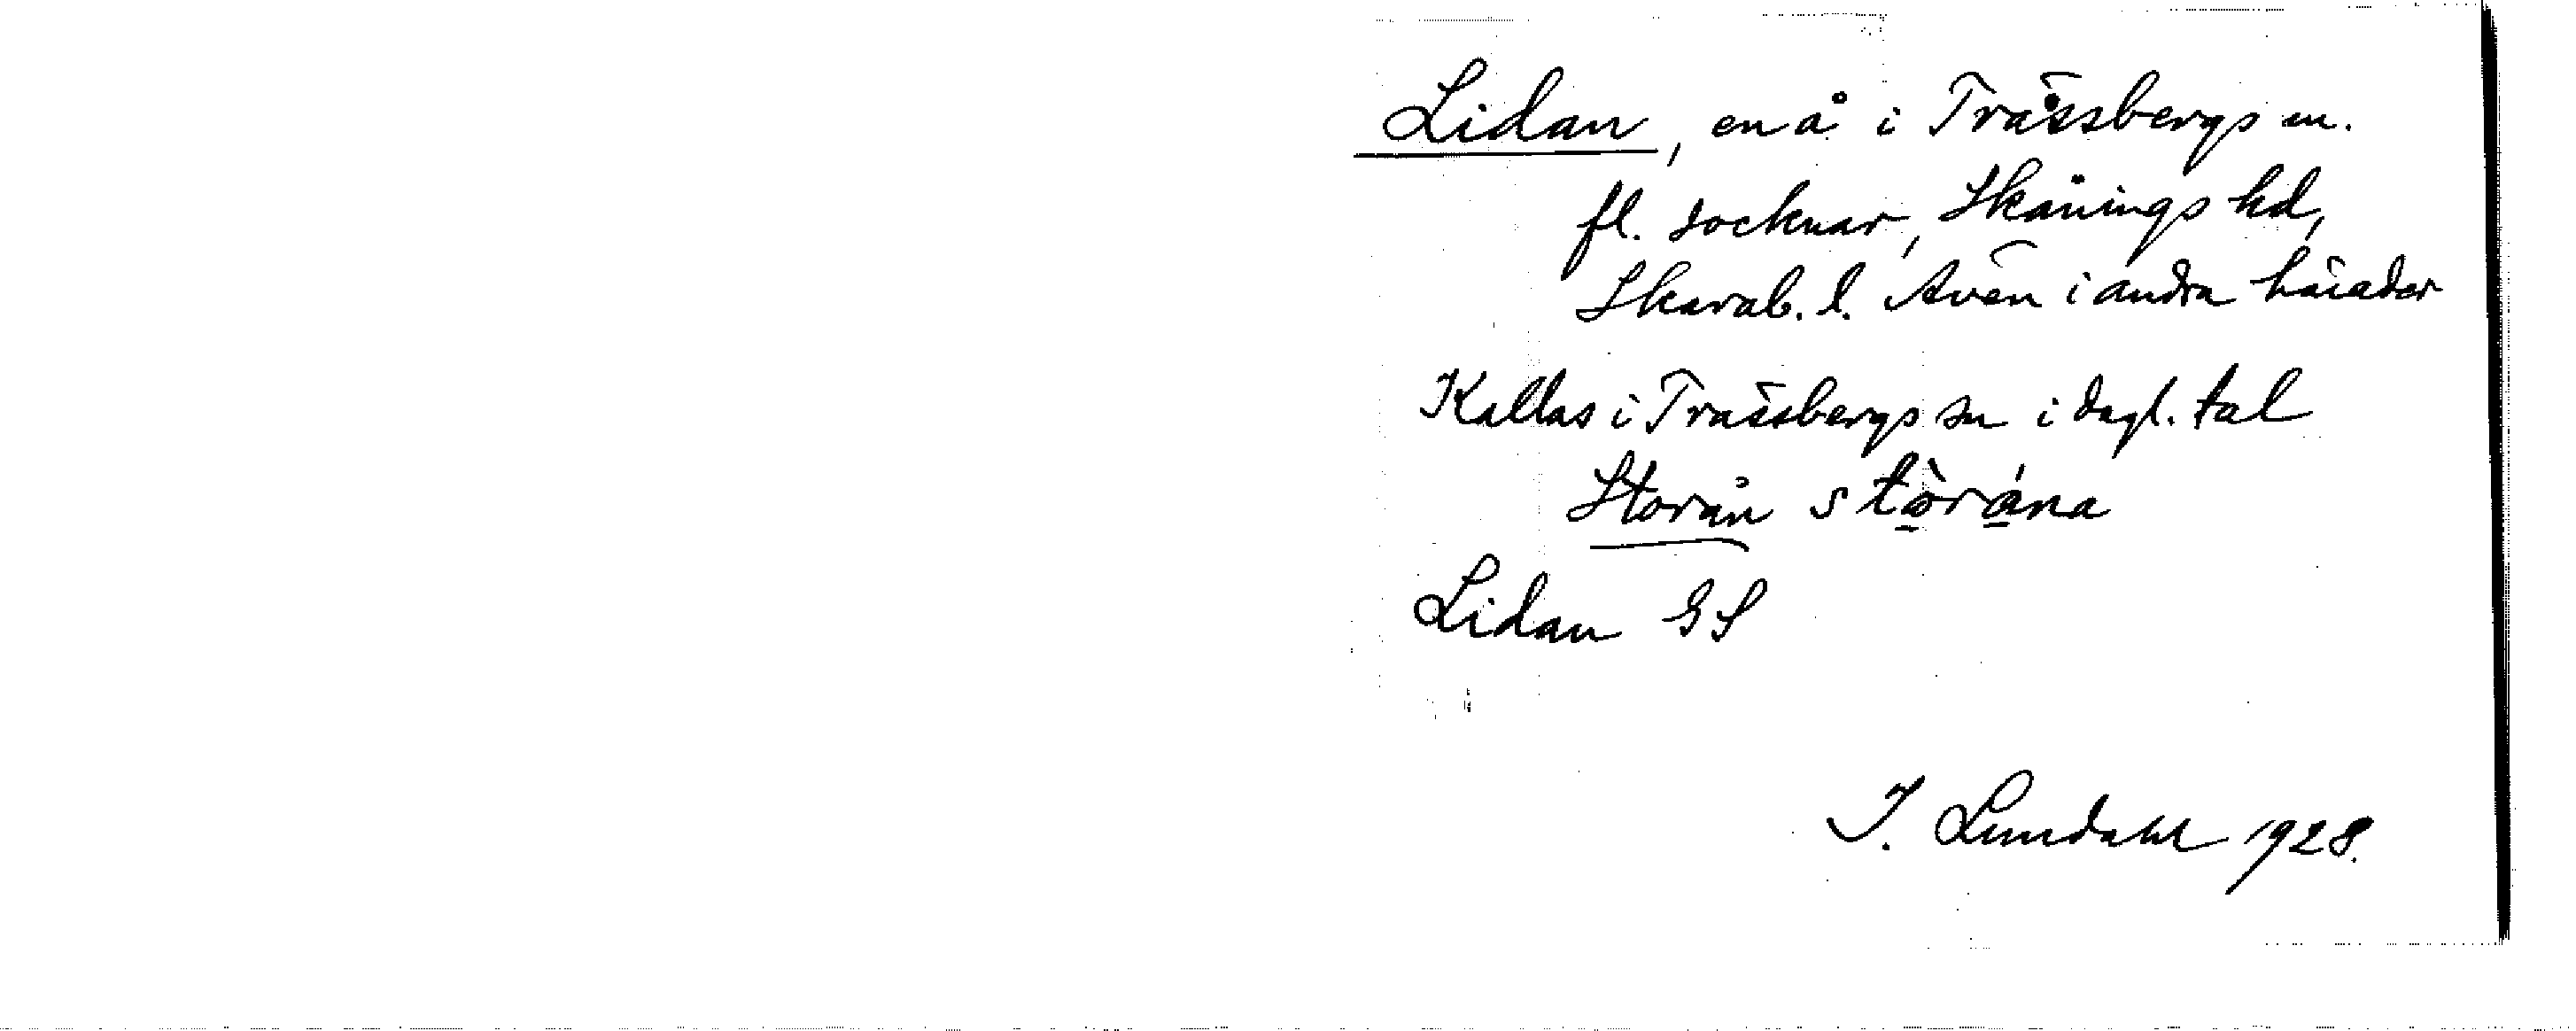 Lidan, en å i Trässbergs m.
fl. socknar, Skånings hd,
Skarab. l. Även i andra härader
Kallas i Trässbergs sn i dagl. tal
Storån stò̠rá̠na
Lidan GS
I. Lundahl 1928.